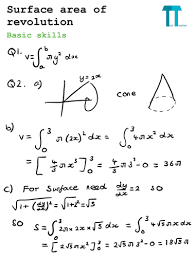 Surface area of
revolution
TL
Basic skills
Q1. V = ∫ₐᵇ πy² dx
Q2. a) y = 2x cone
b) V = ∫₀³ π(2x)² dx = ∫₀³ 4πx² dx
= [4/3 πx³]₀³ = 4/3 π 3³ - 0 = 36π
c) For Surface need dy/dx = 2 so
√(1 + (dy/dx)²) = √(1+2²) = √5
so S = ∫₀³ 2π × 2x × √5 dx = ∫₀³ 4√5 πx dx
= [2√5 πx²]₀³ = 2√5 π 3² - 0 = 18√5 π